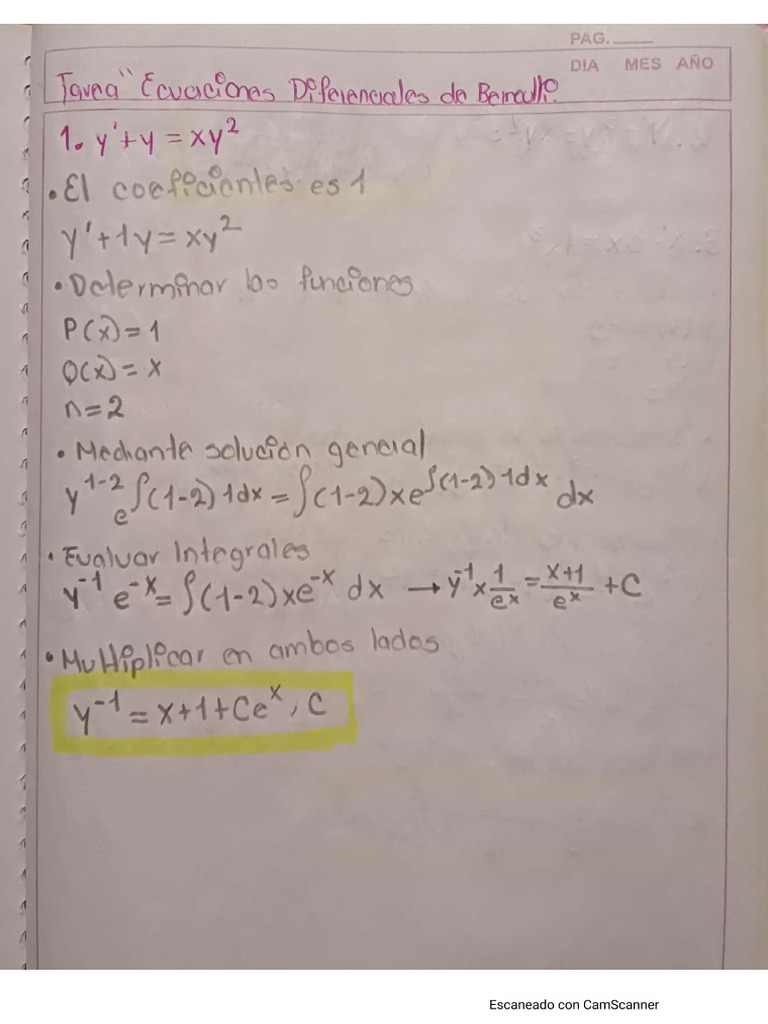 PAG.
DIA MES AÑO
Tarea "Ecuaciones Diferenciales de Bernoulli.
1. y' + y = xy²
• El coeficientes es 1
y' + 1y = xy²
• Determinar las funciones
P(x) = 1
Q(x) = x
n = 2
• Mediante solución general
y^(1-2) e^∫(1-2)1dx = ∫(1-2)xe^∫(1-2)1dx dx
• Evaluar Integrales
y⁻¹ e⁻ˣ = ∫(1-2)xe⁻ˣ dx → y⁻¹ x 1/eˣ = x+1/eˣ + C
• Multiplicar en ambos lados
y⁻¹ = x+1+Ceˣ, C
Escaneado con CamScanner